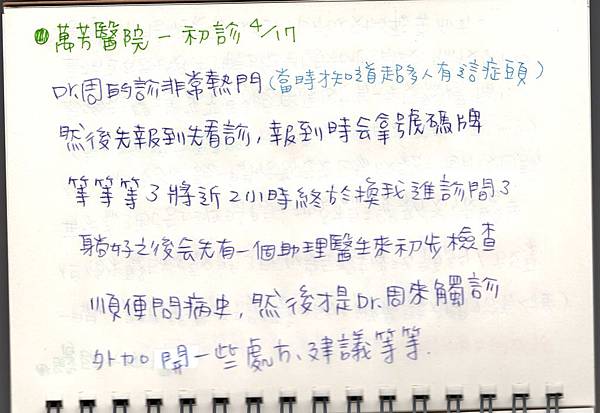 萬芳醫院－初診 4/17
Dr.周的診非常熱門(當時才知道超多人有這症頭)
然後先報到先看診,報到時会拿號碼牌
等等等了將近2小時終於換我進診間了
躺好之後会先有一個助理醫生來初步檢查
順便問病史,然後才是Dr.周來觸診
外加開一些處方、建議等等.